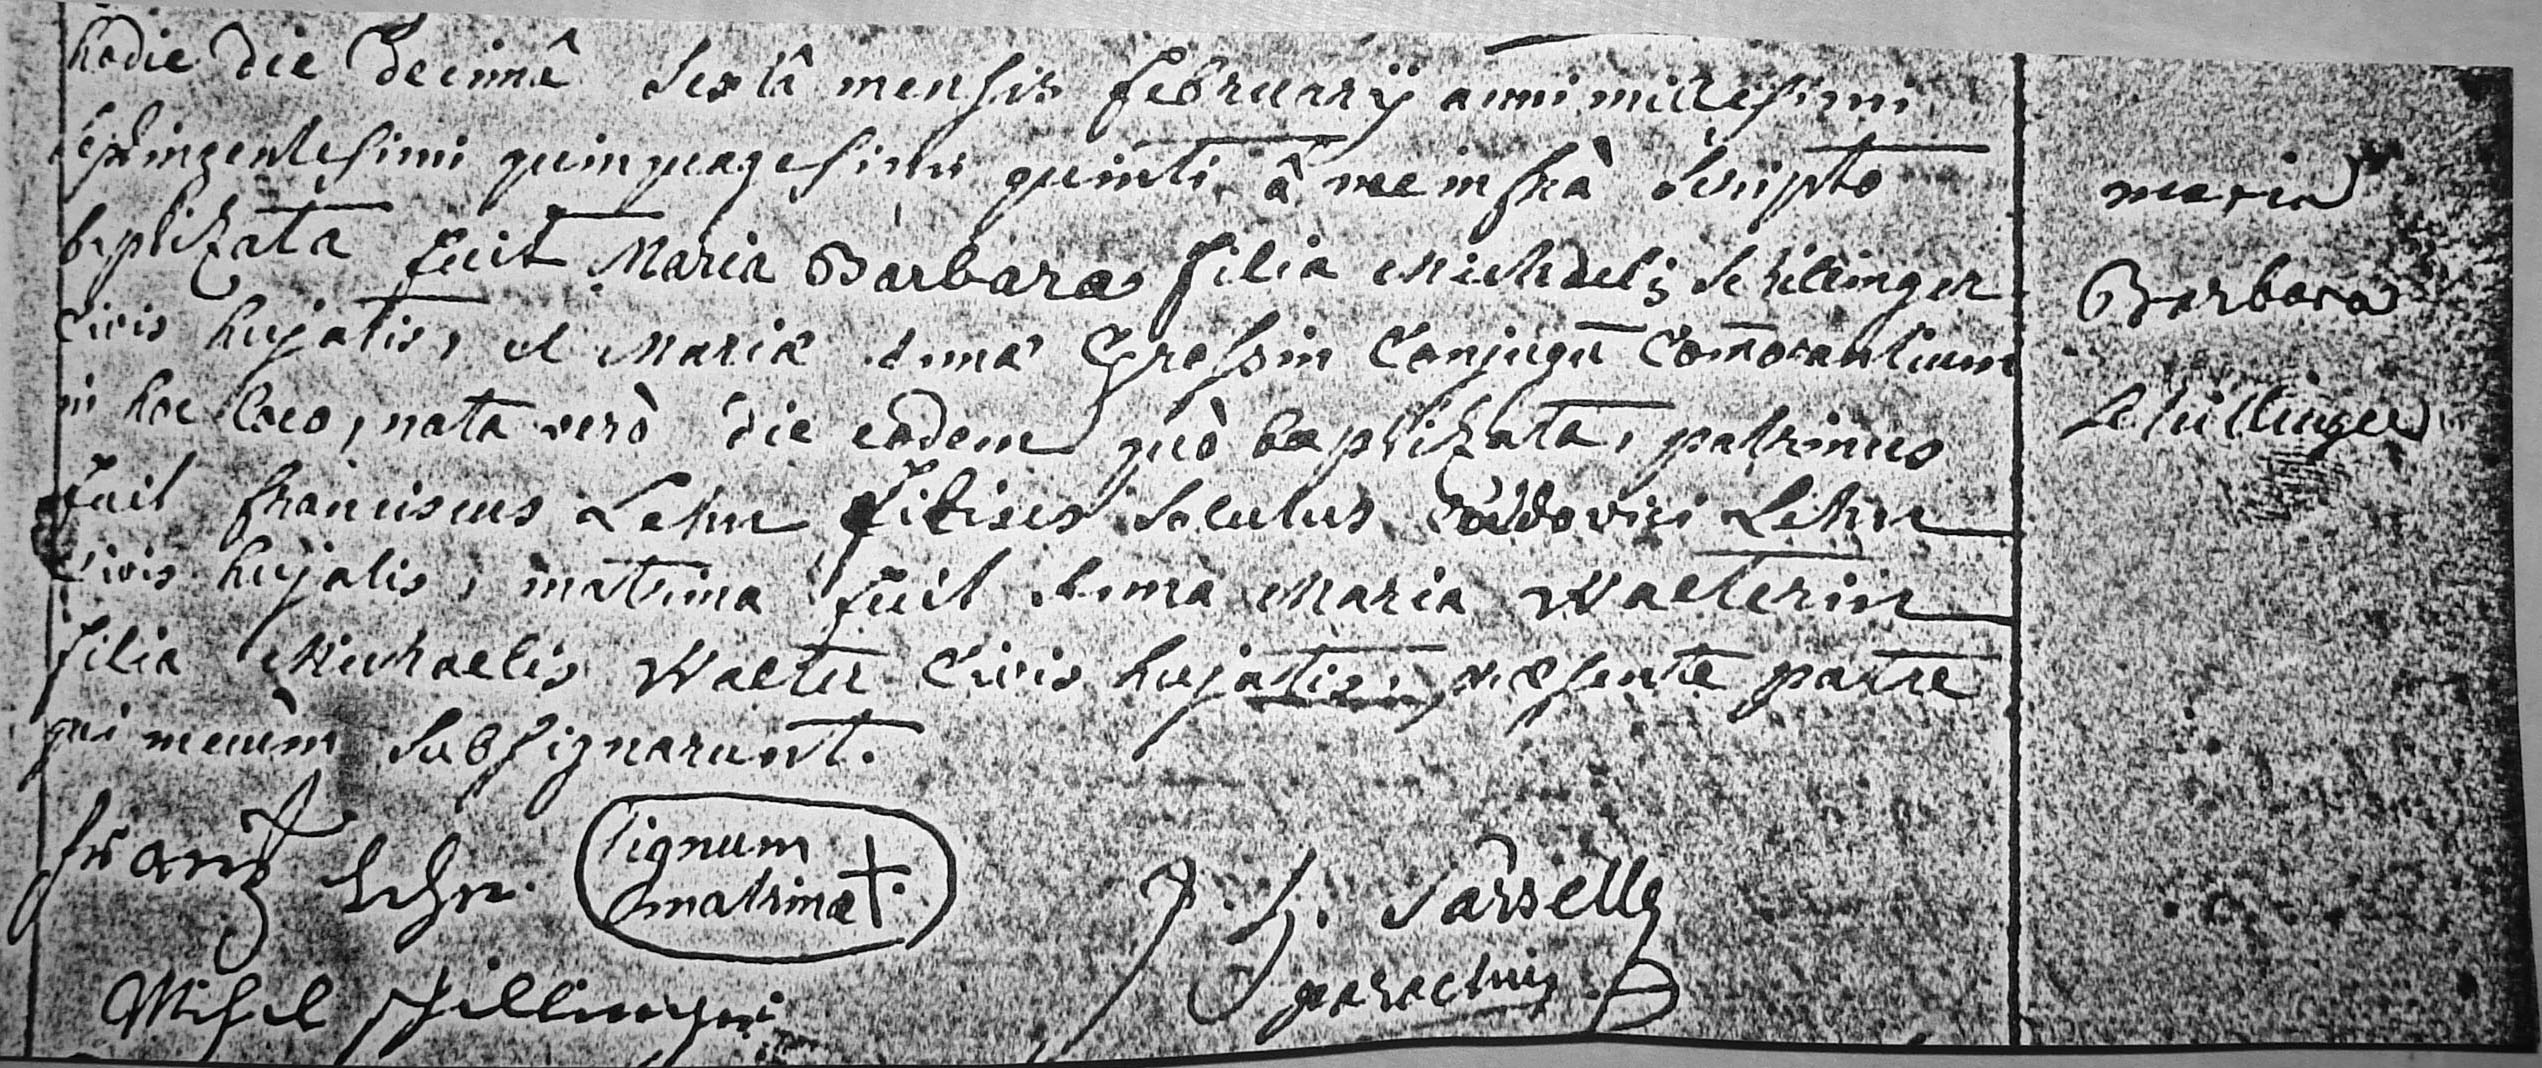 hodie die decimâ Sextâ mensis februarij anni millesimi
septingentesimi quinquagesimi quinti â me infrà Scripto
baptizata fuit Maria Barbara filia Michaelis Schillinger
Civis hujatis, et Mariæ Annæ Grossin Conjugū Com̄orantium
in hoc loco, nata verò die eadem quò baptizata, patrinus
fuit franciscus Lehn filius Solutus Ludovici Lehn
Civis hujatis, matrina fuit Anna Maria Waelterin
filia Michaelis Waelter Civis hujatis, præsente patre
qui mecum Subsignarunt.
frantz Lehn. Signum matrinæ +.
Michel schillinger
J. H. Sarselle
parochus
maria
Barbara
Schillinger